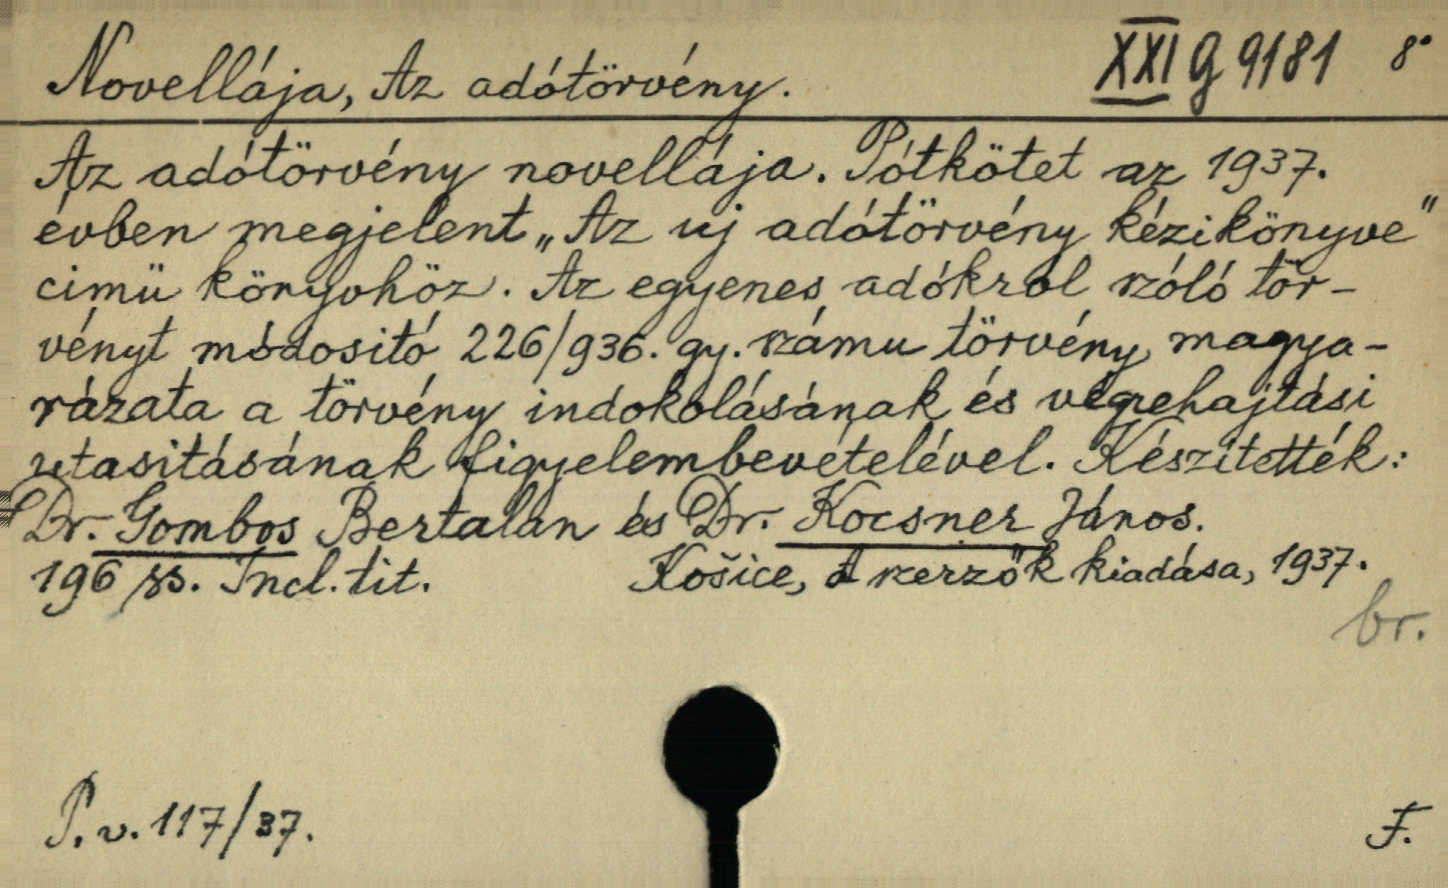 Novellája, Az adótörvény. XXI G 9181 8°
Az adótörvény novellája. Pótkötet az 1937.
évben megjelent „Az uj adótörvény kézikönyve"
cimü könyvhöz. Az egyenes adókról szóló tör-
vényt módositó 226/936. gy. számu törvény magya-
rázata a törvény indokolásának és végrehajtási
utasitásának figyelembevételével. Készítették:
Dr. Gombos Bertalan és Dr. Kocsner János.
196 ss. Incl. tit. Košice, A szerzők kiadása, 1937.
br.
P. v. 117/37.
F.